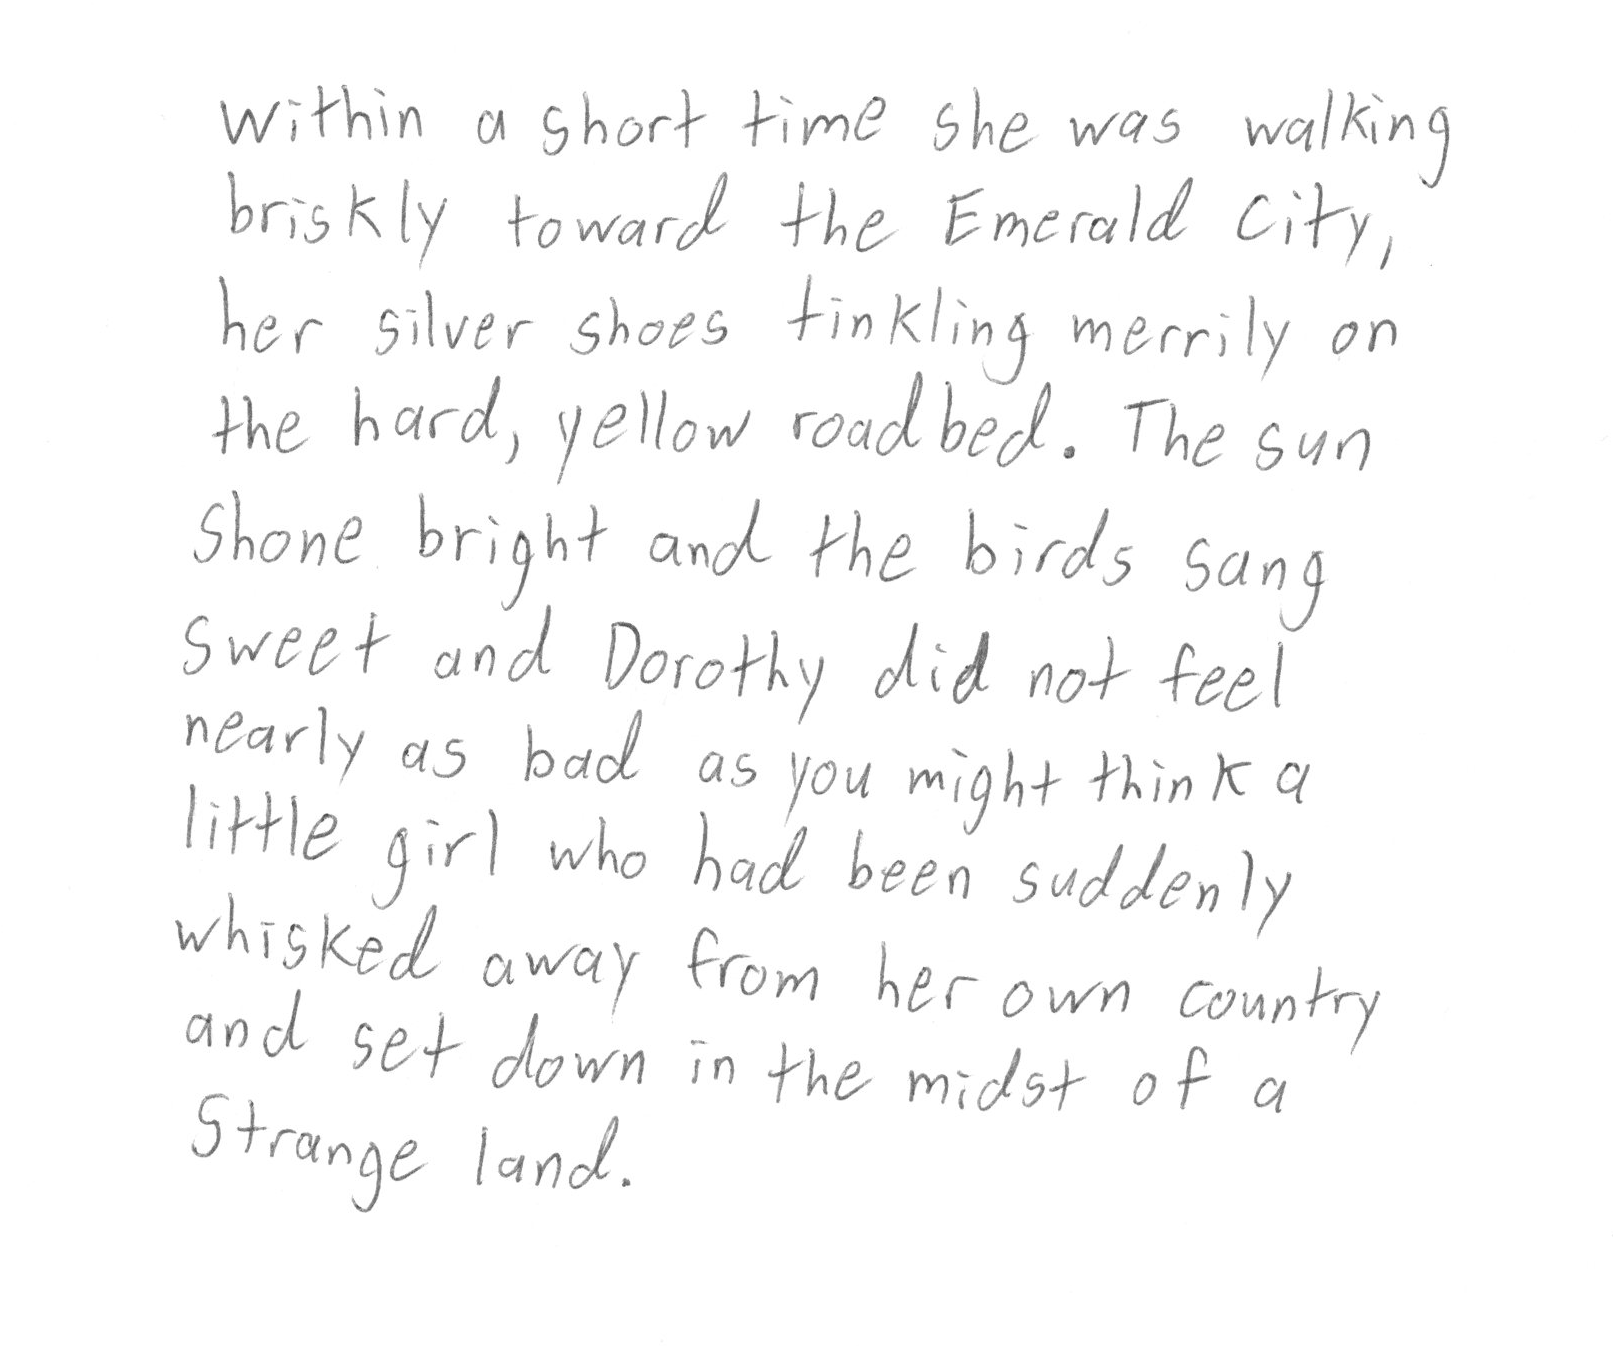 Within a short time she was walking
briskly toward the Emerald City,
her silver shoes tinkling merrily on
the hard, yellow roadbed. The sun
shone bright and the birds sang
sweet and Dorothy did not feel
nearly as bad as you might think a
little girl who had been suddenly
whisked away from her own country
and set down in the midst of a
strange land.